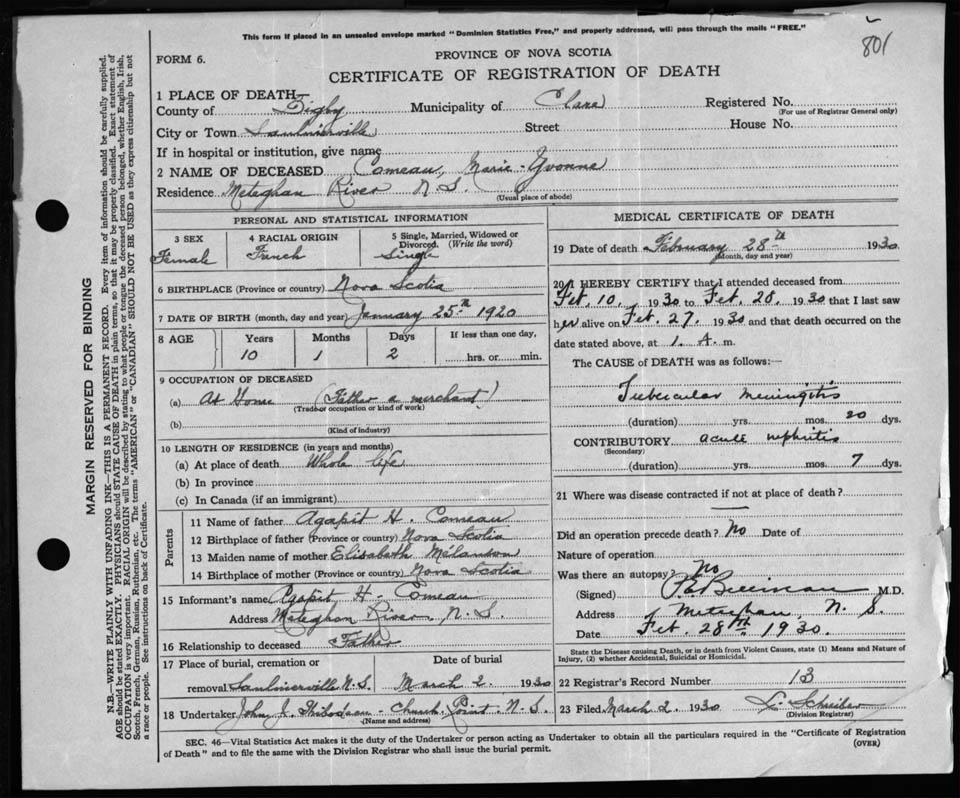 This form if placed in an unsealed envelope marked "Dominion Statistics Free," and properly addressed, will pass through the mails "FREE."
801
FORM 6.
PROVINCE OF NOVA SCOTIA
CERTIFICATE OF REGISTRATION OF DEATH
1 PLACE OF DEATH
County of Digby Municipality of Clare Registered No.
(For use of Registrar General only)
City or Town Saulnierville Street House No.
If in hospital or institution, give name
2 NAME OF DECEASED Comeau, Marie-Yvonne
Residence Meteghan River N.S.
(Usual place of abode)
PERSONAL AND STATISTICAL INFORMATION
3 SEX 4 RACIAL ORIGIN 5 Single, Married, Widowed or Divorced. (Write the word)
Female French Single
6 BIRTHPLACE (Province or country) Nova Scotia
7 DATE OF BIRTH (month, day and year) January 25th 1920
8 AGE Years Months Days If less than one day,
10 1 2 hrs. or min.
9 OCCUPATION OF DECEASED
(a) At Home (Father a merchant)
(Trade or occupation or kind of work)
(b)
(Kind of industry)
10 LENGTH OF RESIDENCE (in years and months)
(a) At place of death Whole life
(b) In province
(c) In Canada (if an immigrant)
Parents
11 Name of father Agapit H. Comeau
12 Birthplace of father (Province or country) Nova Scotia
13 Maiden name of mother Elisabeth Mélanson
14 Birthplace of mother (Province or country) Nova Scotia
15 Informant's name Agapit H. Comeau
Address Meteghan River, N.S.
16 Relationship to deceased Father
17 Place of burial, cremation or Date of burial
removal Saulnierville N.S. March 2 1930
18 Undertaker John J. Thibodeau - Church Point N.S.
(Name and address)
MEDICAL CERTIFICATE OF DEATH
19 Date of death February 28th 1930
(Month, day and year)
20 I HEREBY CERTIFY that I attended deceased from
Feb. 10 1930 to Feb. 28. 1930 that I last saw
her alive on Feb. 27. 1930 and that death occurred on the
date stated above, at 1. A. m.
The CAUSE of DEATH was as follows:—
Tubercular meningitis
(duration) yrs. mos. 20 dys.
CONTRIBUTORY acute nephritis
(Secondary)
(duration) yrs. mos. 7 dys.
21 Where was disease contracted if not at place of death?
Did an operation precede death? No Date of
Nature of operation
Was there an autopsy? No
(Signed) M.D.
Address Meteghan, N. S.
Date Feb. 28th 1930.
State the Disease causing Death, or in death from Violent Causes, state (1) Means and Nature of
Injury, (2) whether Accidental, Suicidal or Homicidal.
22 Registrar's Record Number 13
23 Filed March 2. 1930 Schreiber
(Division Registrar)
SEC. 46—Vital Statistics Act makes it the duty of the Undertaker or person acting as Undertaker to obtain all the particulars required in the "Certificate of Registration
of Death" and to file the same with the Division Registrar who shall issue the burial permit.
(OVER)
MARGIN RESERVED FOR BINDING
N.B.—WRITE PLAINLY WITH UNFADING INK—THIS IS A PERMANENT RECORD. Every item of information should be carefully supplied.
AGE should be stated EXACTLY. PHYSICIANS should STATE CAUSE OF DEATH in plain terms, so that it may be properly classified. Exact statement of
OCCUPATION is very important. RACIAL ORIGIN will be described by stating to what people or tongue the deceased person belonged, whether English, Irish,
Scotch, French, German, Russian, Ruthenian, etc. The terms "AMERICAN" or "CANADIAN" SHOULD NOT BE USED as they express citizenship but not
a race or people. See instructions on back of Certificate.